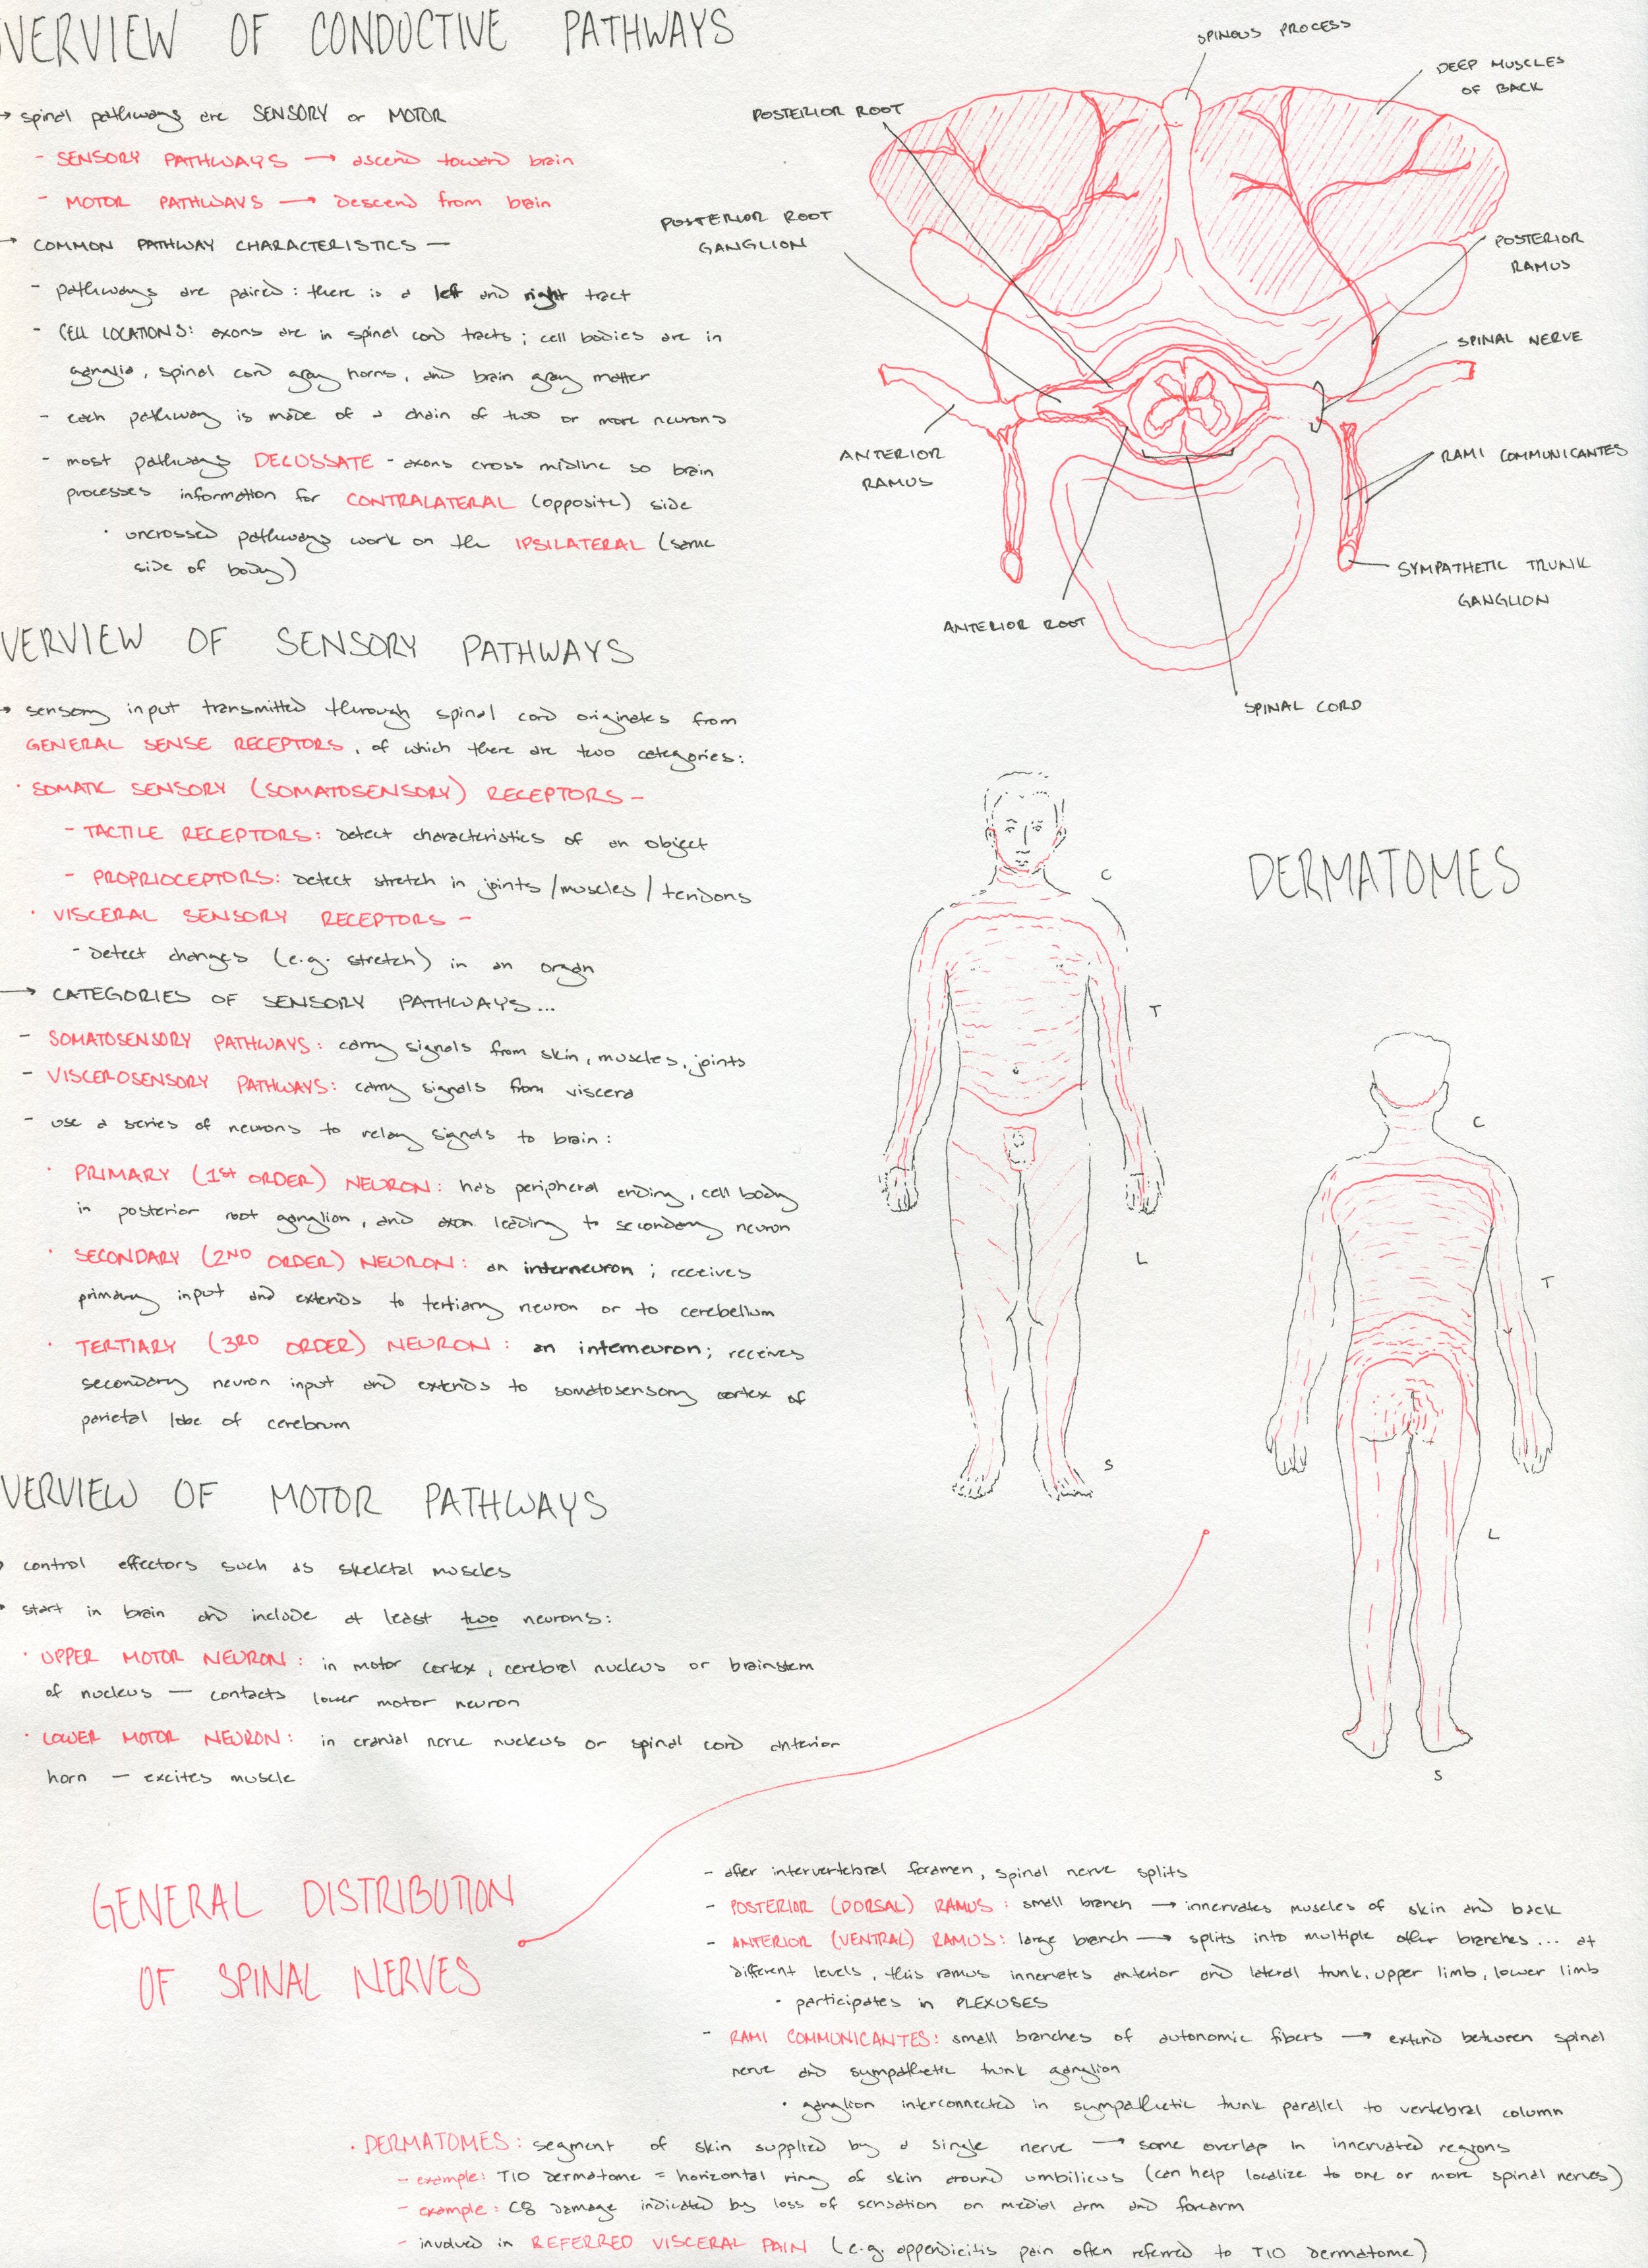 VERVIEW OF CONDUCTIVE PATHWAYS
→ spinal pathways are SENSORY or MOTOR
- SENSORY PATHWAYS → ascend toward brain
- MOTOR PATHWAYS → descend from brain
→ COMMON PATHWAY CHARACTERISTICS —
- pathways are paired: there is a left and right tract
- CELL LOCATIONS: axons are in spinal cord tracts; cell bodies are in
ganglia, spinal cord gray horns, and brain gray matter
- each pathway is made of a chain of two or more neurons
- most pathways DECUSSATE - axons cross midline so brain
processes information for CONTRALATERAL (opposite) side
· uncrossed pathways work on the IPSILATERAL (same
side of body)
SPINOUS PROCESS
DEEP MUSCLES
OF BACK
POSTERIOR ROOT
POSTERIOR ROOT
GANGLION
POSTERIOR
RAMUS
SPINAL NERVE
ANTERIOR
RAMUS
RAMI COMMUNICANTES
SYMPATHETIC TRUNK
GANGLION
ANTERIOR ROOT
SPINAL CORD
VERVIEW OF SENSORY PATHWAYS
→ sensory input transmitted through spinal cord originates from
GENERAL SENSE RECEPTORS, of which there are two categories:
· SOMATIC SENSORY (SOMATOSENSORY) RECEPTORS -
- TACTILE RECEPTORS: detect characteristics of an object
- PROPRIOCEPTORS: detect stretch in joints/muscles/tendons
· VISCERAL SENSORY RECEPTORS -
- detect changes (e.g. stretch) in an organ
→ CATEGORIES OF SENSORY PATHWAYS...
- SOMATOSENSORY PATHWAYS: carry signals from skin, muscles, joints
- VISCEROSENSORY PATHWAYS: carry signals from viscera
- use a series of neurons to relay signals to brain:
· PRIMARY (1st ORDER) NEURON: has peripheral ending, cell body
in posterior root ganglion, and axon leading to secondary neuron
· SECONDARY (2ND ORDER) NEURON: an interneuron; receives
primary input and extends to tertiary neuron or to cerebellum
· TERTIARY (3RD ORDER) NEURON: an interneuron; receives
secondary neuron input and extends to somatosensory cortex of
parietal lobe of cerebrum
DERMATOMES
C
T
L
S
C
T
L
S
VERVIEW OF MOTOR PATHWAYS
→ control effectors such as skeletal muscles
→ start in brain and include at least two neurons:
· UPPER MOTOR NEURON: in motor cortex, cerebral nucleus or brainstem
of nucleus — contacts lower motor neuron
· LOWER MOTOR NEURON: in cranial nerve nucleus or spinal cord anterior
horn — excites muscle
GENERAL DISTRIBUTION
OF SPINAL NERVES
- after intervertebral foramen, spinal nerve splits
- POSTERIOR (DORSAL) RAMUS: small branch → innervates muscles of skin and back
- ANTERIOR (VENTRAL) RAMUS: large branch → splits into multiple other branches... at
different levels, this ramus innervates anterior and lateral trunk, upper limb, lower limb
· participates in PLEXUSES
- RAMI COMMUNICANTES: small branches of autonomic fibers → extend between spinal
nerve and sympathetic trunk ganglion
· ganglion interconnected in sympathetic trunk parallel to vertebral column
· DERMATOMES: segment of skin supplied by a single nerve → some overlap in innervated regions
- example: T10 dermatome = horizontal ring of skin around umbilicus (can help localize to one or more spinal nerves)
- example: C8 damage indicated by loss of sensation on medial arm and forearm
- involved in REFERRED VISCERAL PAIN (e.g. appendicitis pain often referred to T10 dermatome)